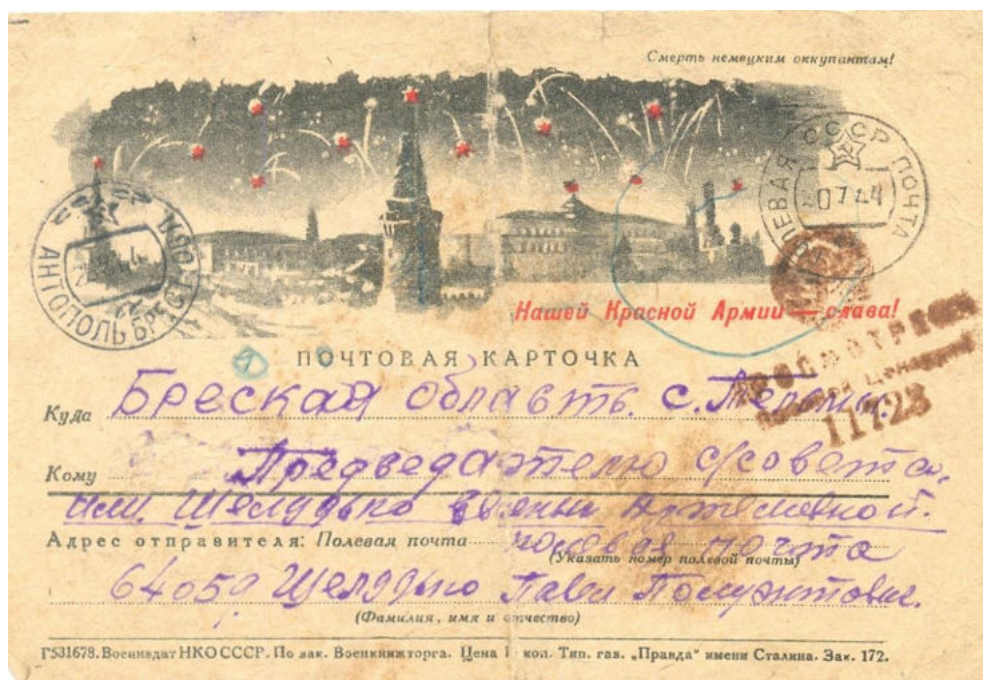 Смерть немецким оккупантам!
ПОЛЕВАЯ ПОЧТА СССР
07 44
АНТОПОЛЬ БРЕСТ. ОБЛ.
Нашей Красной Армии — слава!
ПОЧТОВАЯ КАРТОЧКА
ПРОСМОТРЕНО
Военной Цензурой
11723
Куда Бреская облавть. с.
Кому Предведателю с/совета,
или Шелудько Артемовной.
Адрес отправителя: Полевая почта полевая почта
(Указать номер полевой почты)
64059 Шелудько Павел
(Фамилия, имя и отчество)
Г531678. Воениздат НКО СССР. По зак. Военкнижторга. Цена коп. Тип. газ. „Правда" имени Сталина. Зак. 172.